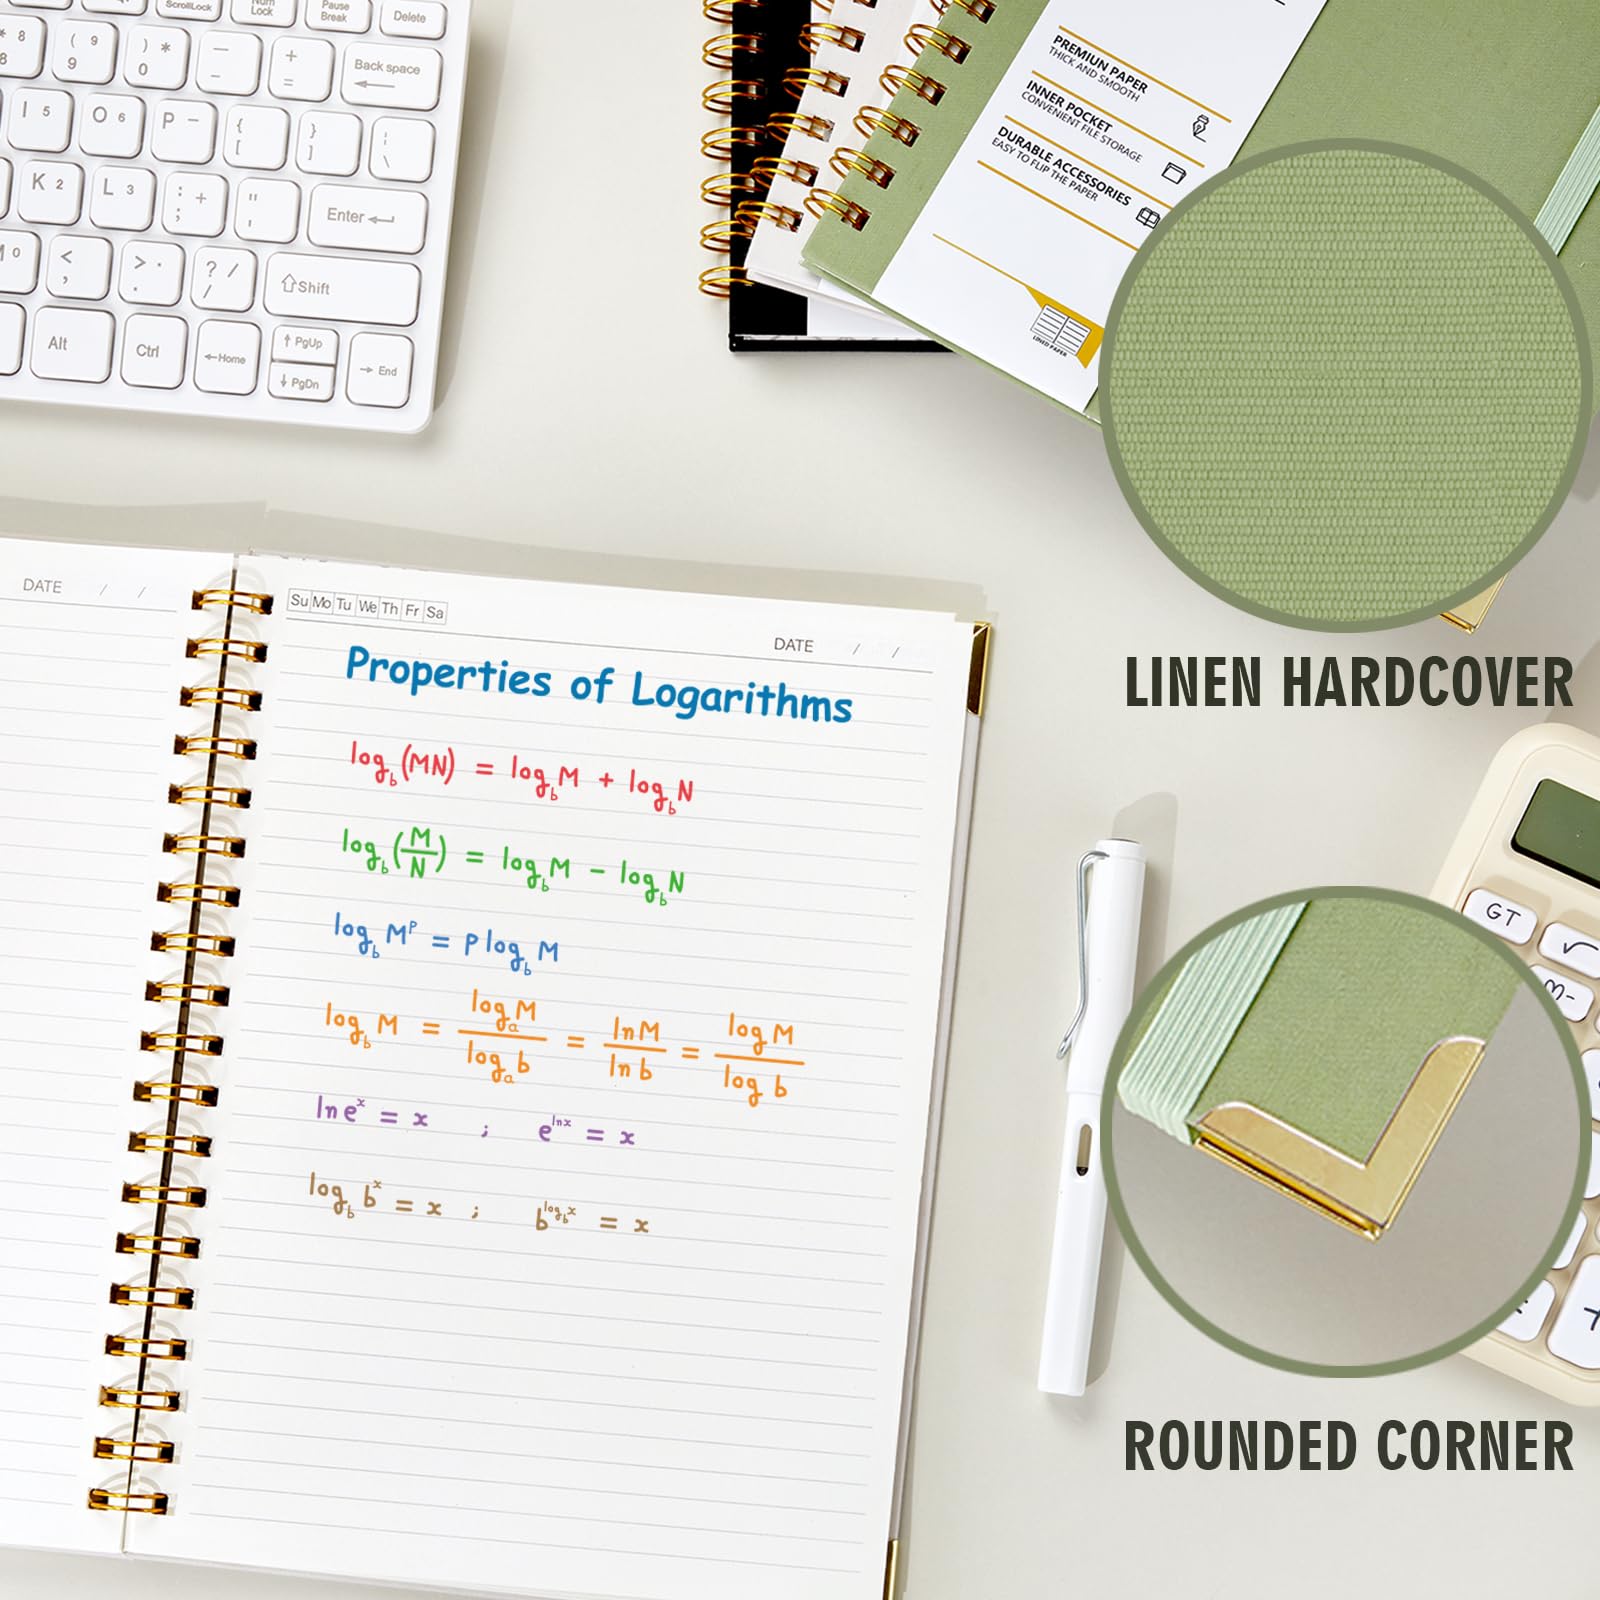 ScrollLock
Num
Lock
Pause
Break
Delete
* 8
8
( 9
9
) *
0
—
-
+
=
Back space
I 5
O 6
P —
{
[
}
]
¦
\
K 2
L 3
: +
;
"
'
Enter
0
<
,
> ·
.
? /
/
Shift
Alt
Ctrl
←Home
↑ PgUp
↓ PgDn
→ End
PREMIUN PAPER
THICK AND SMOOTH
INNER POCKET
CONVENIENT FILE STORAGE
DURABLE ACCESSORIES
EASY TO FLIP THE PAPER
LINED PAPER
LINEN HARDCOVER
DATE / /
Su Mo Tu We Th Fr Sa
DATE / /
Properties of Logarithms
log_b(MN) = log_b M + log_b N
log_b(M/N) = log_b M - log_b N
log_b M^P = P log_b M
log_b M = log_a M / log_a b = ln M / ln b = log M / log b
ln e^x = x ; e^(ln x) = x
log_b b^x = x ; b^(log_b x) = x
GT
√
M-
ROUNDED CORNER